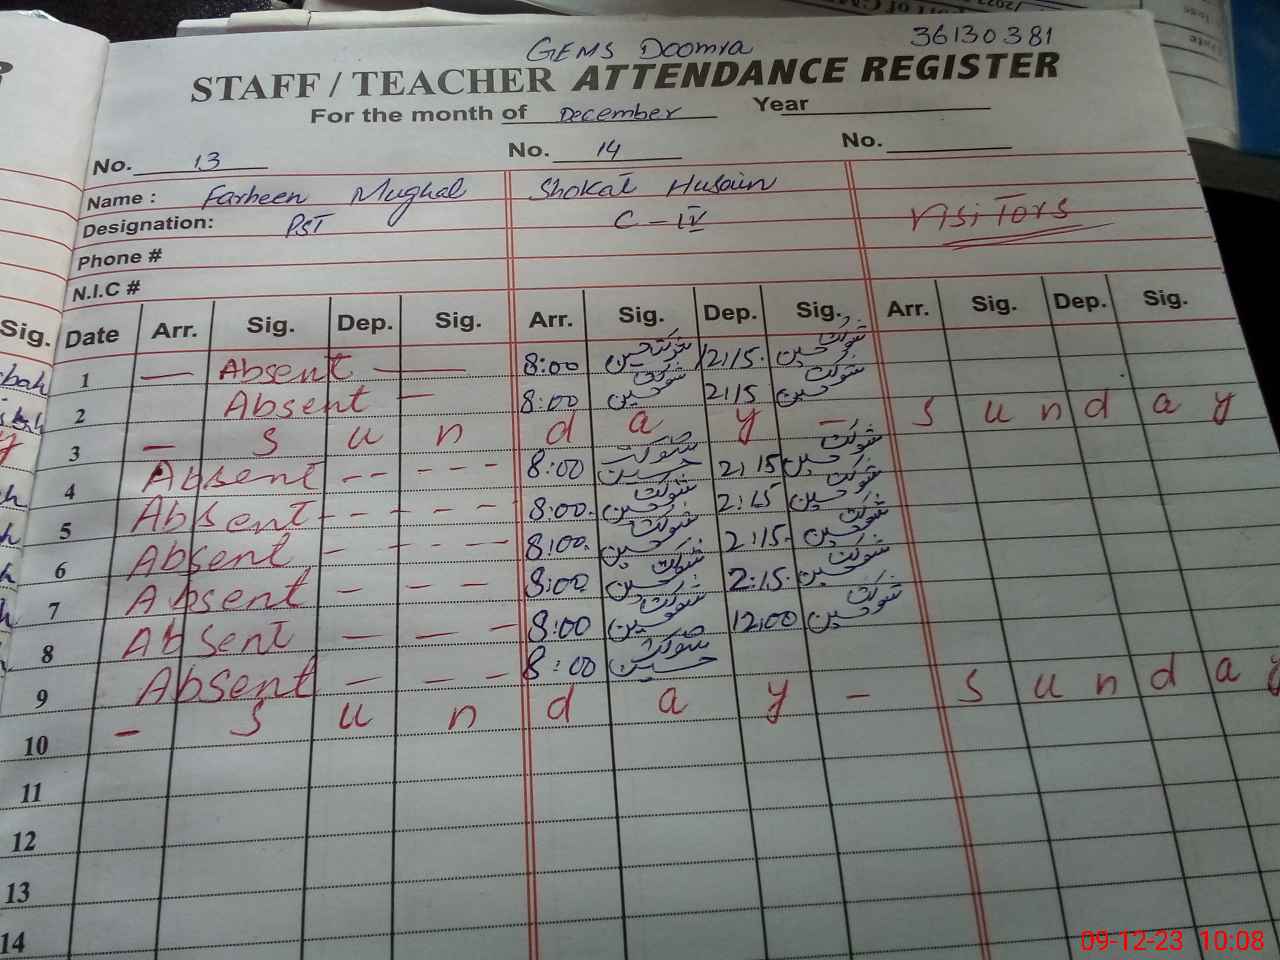 GEMS Doomra 36130381
STAFF / TEACHER ATTENDANCE REGISTER
For the month of December Year
No. 13 No. 14 No.
Name : Farheen Mughal Shokat Husain
Designation: PST C-IV Visitors
Phone #
N.I.C #
Sig. Date Arr. Sig. Dep. Sig. Arr. Sig. Dep. Sig. Arr. Sig. Dep. Sig.
1 — Absent — 8:00 شوکت حسین 12:15 شوکت حسین
2 Absent — 8:00 شوکت حسین 2:15 شوکت حسین
3 — S u n d a y — S u n d a y
4 Absent -- --- 8:00 شوکت حسین 2:15 شوکت حسین
5 Absent - - - - - 8:00 شوکت حسین 2:15 شوکت حسین
6 Absent - - - - - 8:00 شوکت حسین 2:15 شوکت حسین
7 Absent — — — 8:00 شوکت حسین 2:15 شوکت حسین
8 Absent — — — 8:00 شوکت حسین 12:00 شوکت حسین
9 Absent — — — 8:00 شوکت حسین
10 — S u n d a y — S u n d a y
11
12
13
14
09-12-23 10:08